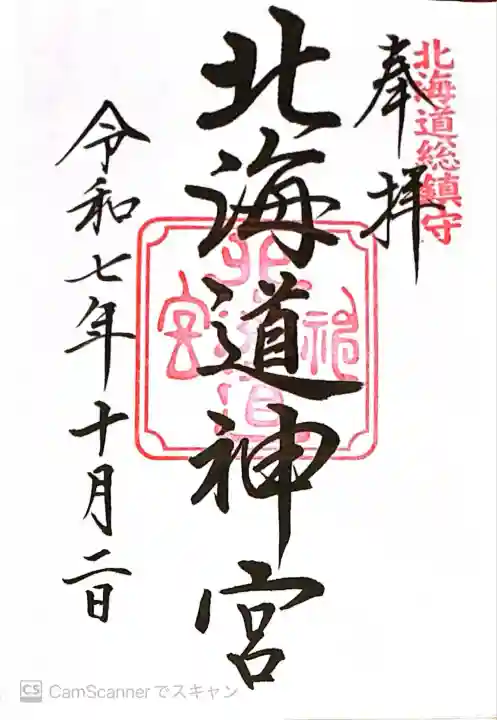 北海道総鎮守
奉拝
北海道神宮
北海道神宮
令和七年十月二日
CS CamScannerでスキャン